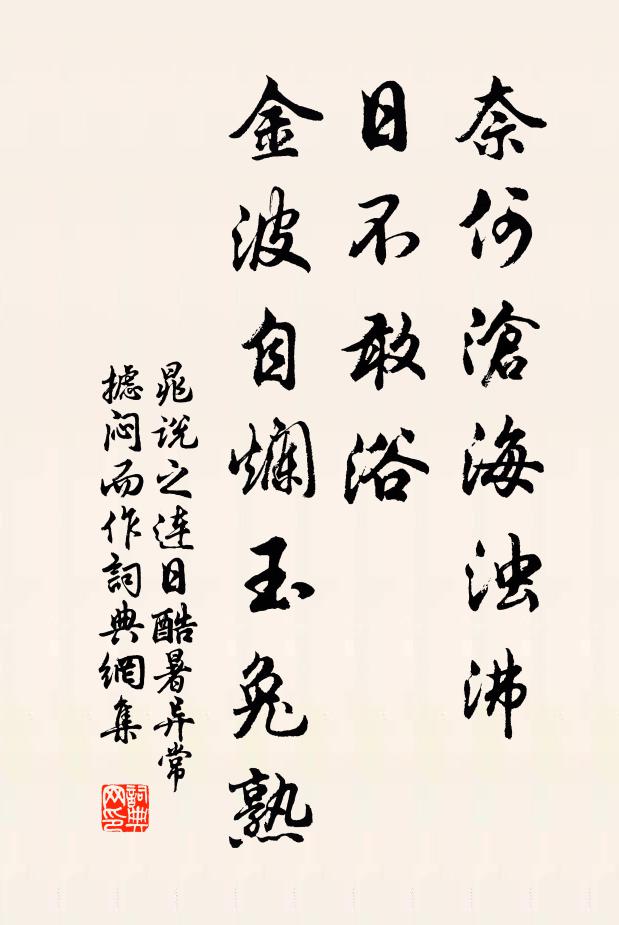 奈何滄海浊沸
日不敢浴
金波自爛玉兔熟
晁说之连日酷暑异常
摅闷而作詞典網集
詞典网印